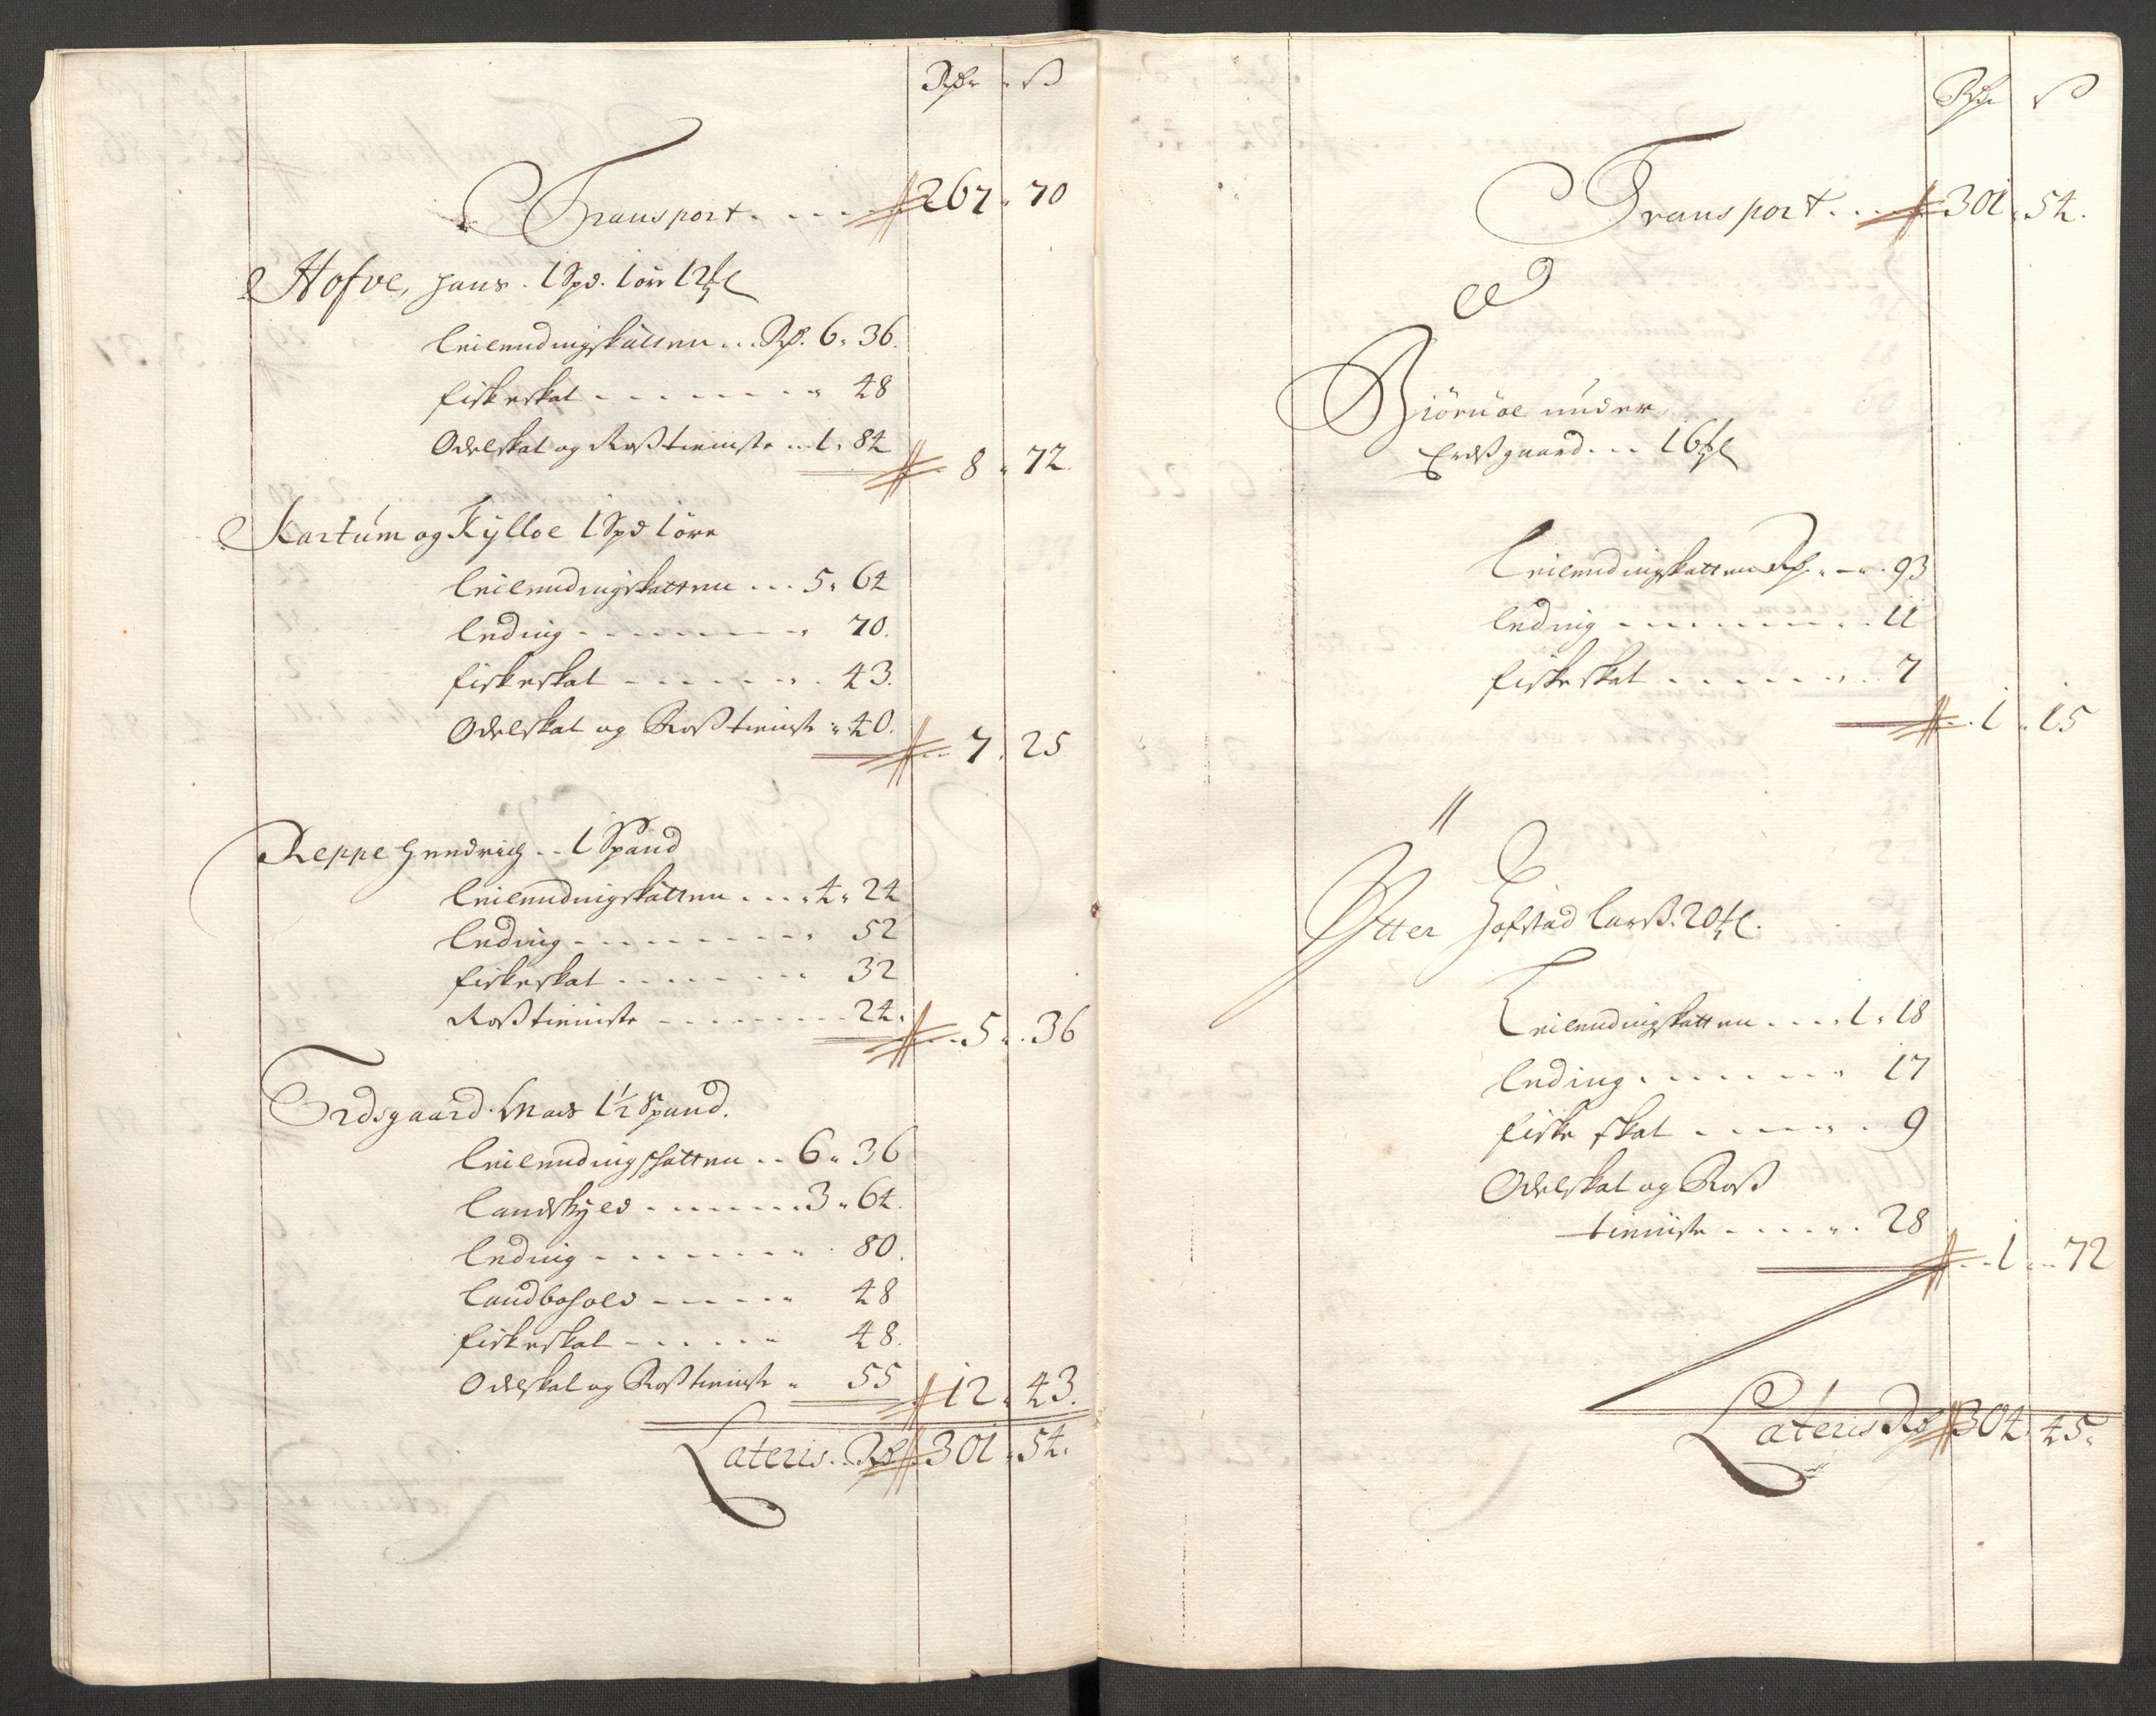 Rdr ß
Transport . . . . 267 . 70
Hofve, Hans . 1 Spd. 1 ør 12 ℔
Leilendingskatten . . Rd. 6 . 36.
fiskeskat . . . . . . . 48
Odelskat og Roßtieniste . . 1 . 84
8 . 72.
Kartum og Kylloe 1 Spd 1 øre
Leilendingskatten . . . 5 . 64
Leding . . . . . . . . 70.
fiskeskat . . . . . . . 43.
Odelskat og Roßtieniste . 40.
7 . 25
Reppe Hendrich . . 1 Spand
Leilendingskatten . . . 4 . 24
Leding . . . . . . . . 52
fiskeskat . . . . . . . 32
Roßtieniste . . . . . . . 24.
5 . 36
Erdsgaard Mads 1½ Spand.
Leilendingskatten . . 6 . 36
Landskyld . . . . . . 3 . 64.
Leding . . . . . . . . 80.
Landbohold . . . . . 48
fiskeskat . . . . . . 48.
Odelskat og Roßtieniste . 55
12 . 43.
Lateris . . Rd 301 . 54.
Rdr ß
Transport . . . 301 . 54.
Biörnöe under
Erdßgaard . . . 16 ℔
Leilendingskatten Rd. . — . 93
Leding . . . . . . . . 11
fiskeskat . . . . . . . 7
1 . 15
Ytter Hofstad Larß. 20 ℔.
Leilendingskatten . . . . 1 . 18
Leding . . . . . . . 17
fiske skat . . . . . . 9
Odelskat og Roß
tieniste . . . . . . 28
1 . 72
Lateris Rd 304 . 45.